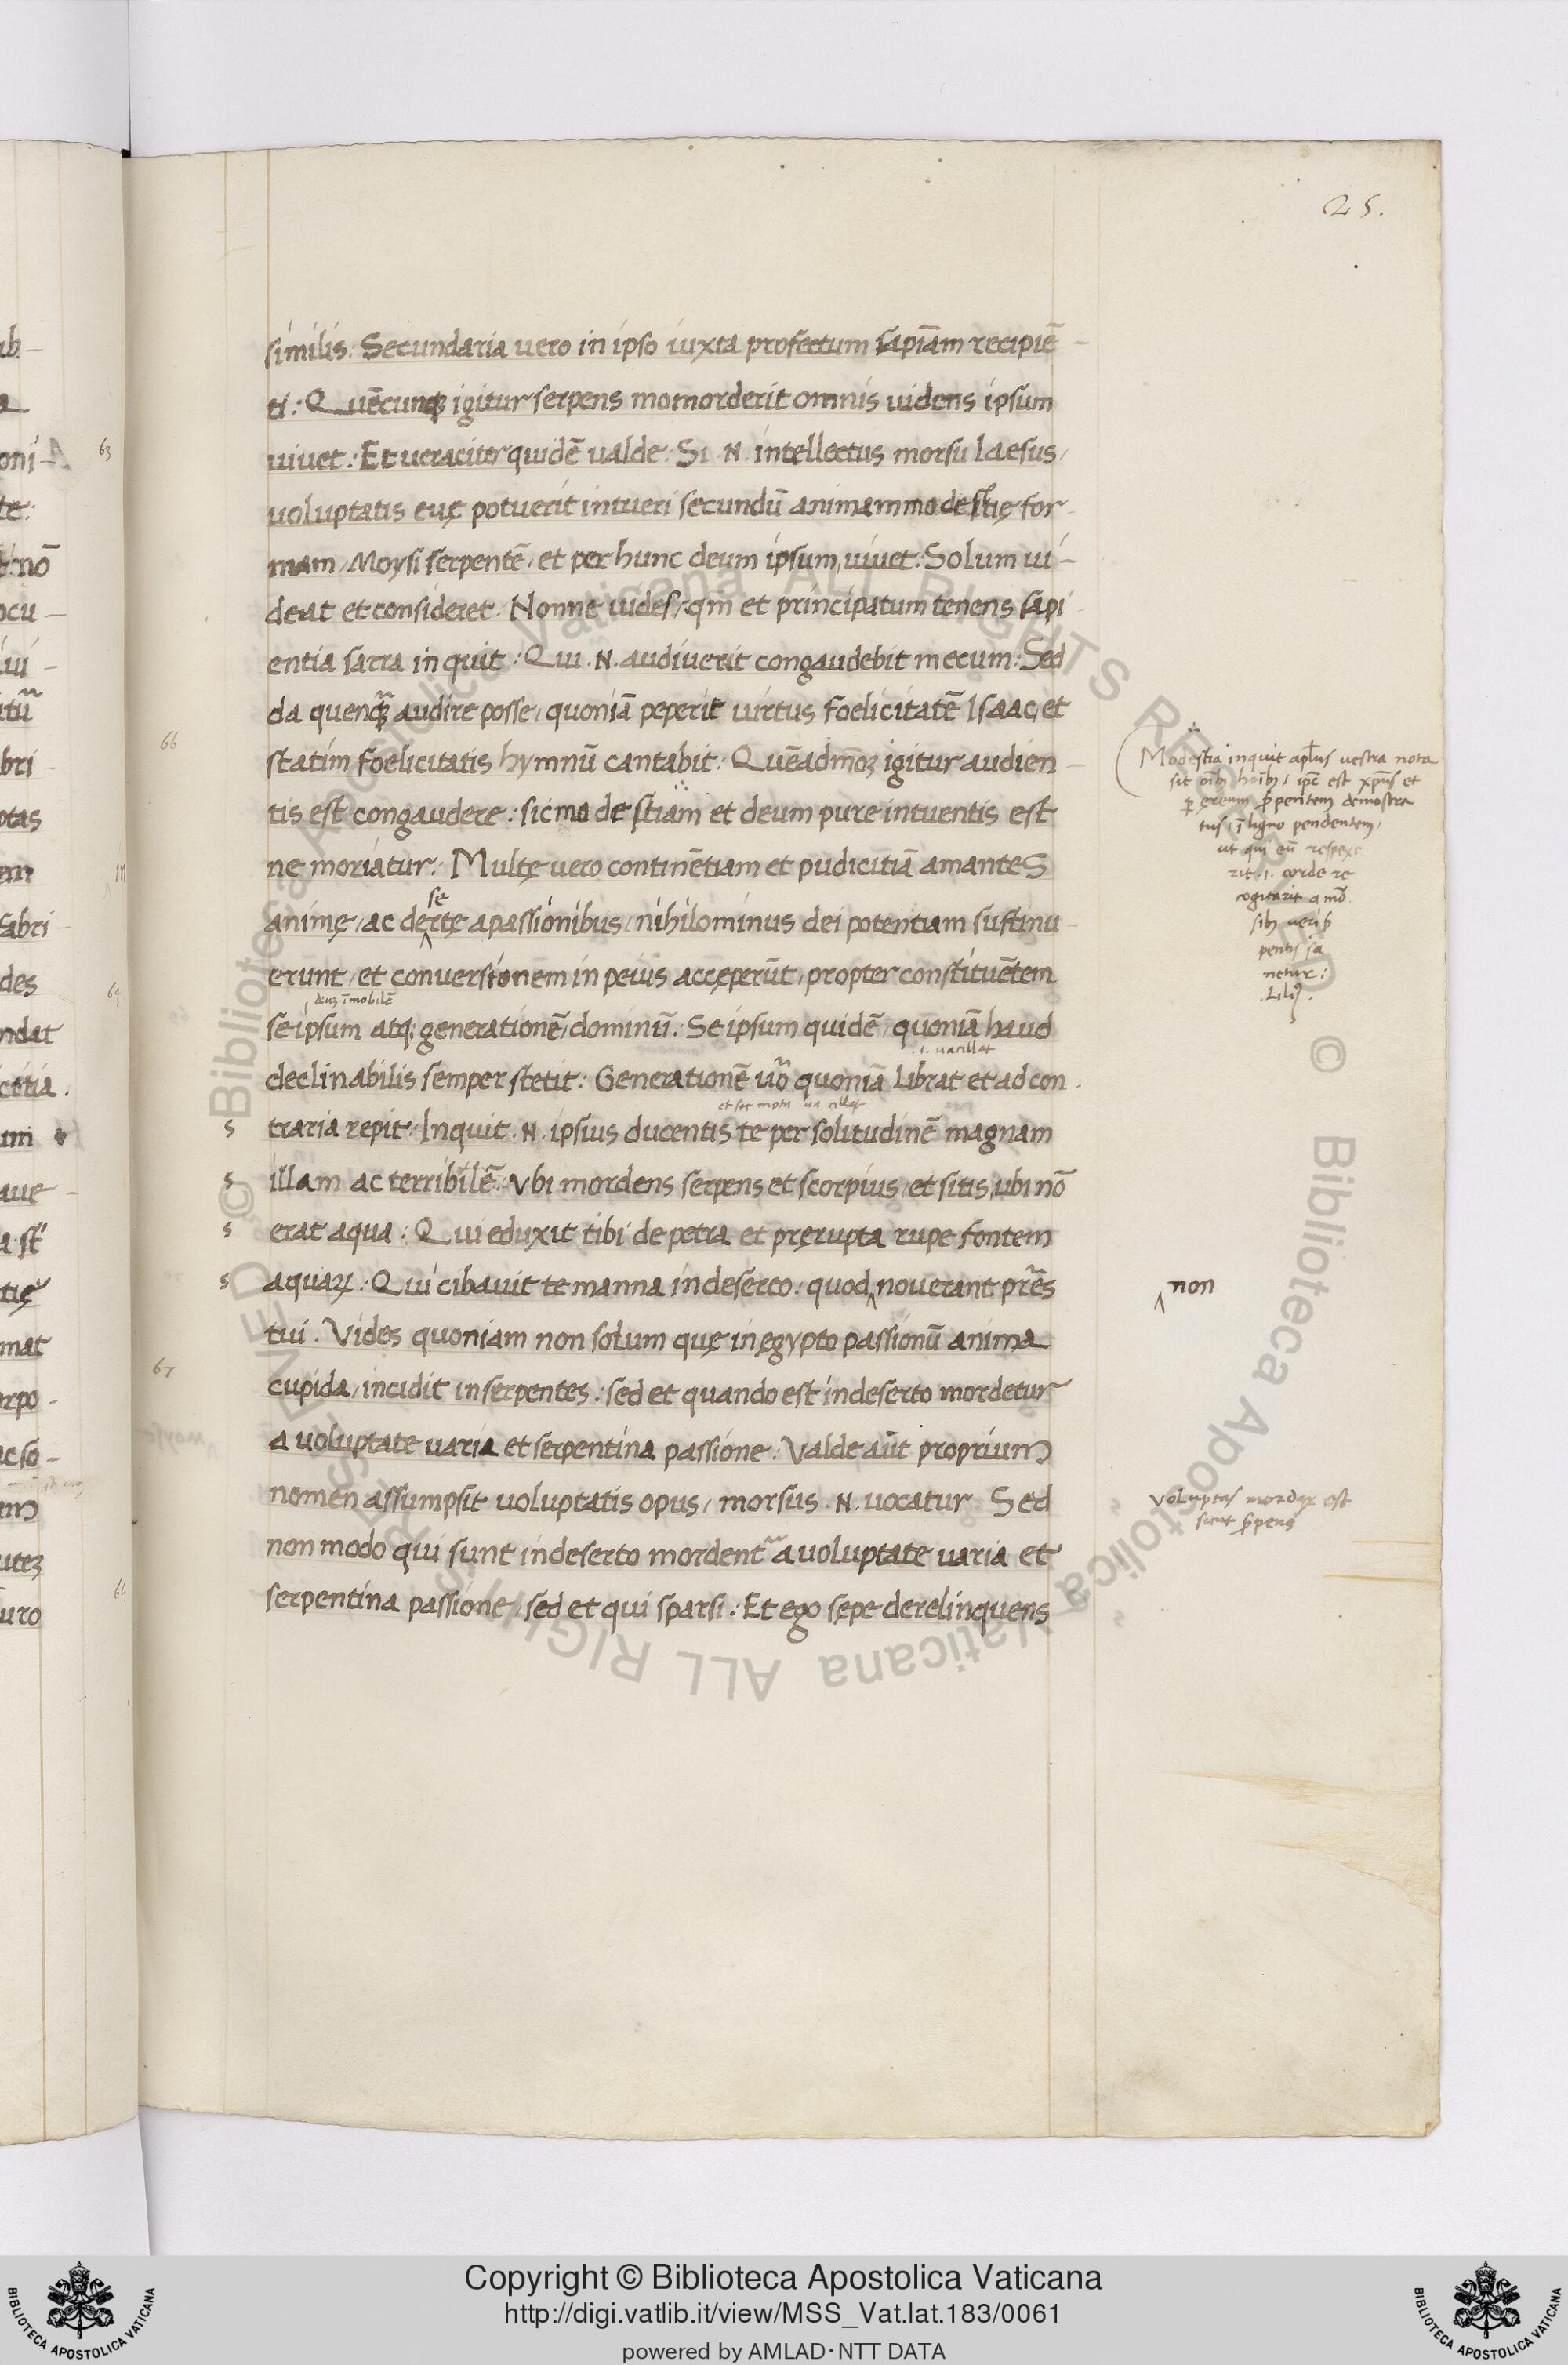 25.
similis: Secundaria uero in ipso iuxta profectum sapiam̄ recipiē-
ti: Quēcunqꝫ igitur serpens momorderit omnis uidens ipsum
uiuet: Et ueraciter quidē ualde: Si .N. intellectus morsu laesus,
uoluptatis euę potuerit intueri secundū animam modestię for-
mam, Moysi serpentē, et per hunc deum ipsum, uiuet: Solum ui-
deat et consideret. Nonne uides, qm̄ et principatum tenens sapi-
entia sarra inquit: Qui .N. audiuerit congaudebit mecum: Sed
66
da quenqꝫ audire posse, quoniā peperit uirtus foelicitatē Isaac, et
statim foelicitatis hymnū cantabit: Quēadmoꝫ igitur audien-
tis est congaudere: sic modestiam et deum pure intuentis est
ne moriatur. Multę uero continētiam et pudicitiā amantes
se
animę, ac dertę a passionibus, nihilominus dei potentiam sustinu-
erunt, et conuersionem in peius accęperūt, propter constituētem
seipsum atqꝫ generationē, dominū: Seipsum quidē, quoniā haud
.i. uacillat
declinabilis semper stetit: Generationē uo quoniā librat et ad con-
s traria repit. Inquit .N. ipsius ducentis te per solitudinē magnam
s illam ac terribilē: Vbi mordens serpens et scorpius, et sitis, ubi nō
s erat aqua: Qui eduxit tibi de petra et pręrupta rupe fontem
s aquaꝝ: Qui cibauit te manna in deserto: quod ‸ nouerant pr̄es
tui. Vides quoniam non solum quę in ęgypto passionū anima
67
cupida, incidit in serpentes: sed et quando est in deserto mordetur
a uoluptate uaria et serpentina passione: Valde aūt proprium
nomen assumpsit uoluptatis opus, morsus .N. uocatur. Sed
non modo qui sunt in deserto mordent̃ a uoluptate uaria et
serpentina passione, sed et qui sparsi: Et ego sępe derelinquens
Modestia inquit apl̄us uestra nota
sit oīb hoīb, ipē est xp̄us et
tus, ī ligno pendentem,
ut qui eū respexe
rit .i. corde re
cogitarit a mō
netur:
‸ non
Voluptas mordax est
sicut s̄pens
Copyright © Biblioteca Apostolica Vaticana
http://digi.vatlib.it/view/MSS_Vat.lat.183/0061
powered by AMLAD·NTT DATA
BIBLIOTECA APOSTOLICA VATICANA
BIBLIOTECA APOSTOLICA VATICANA